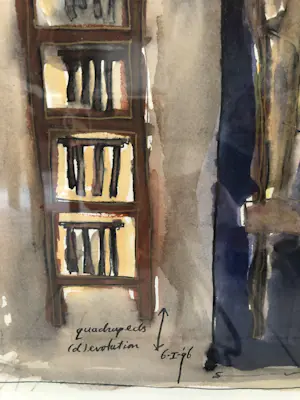 quadrupeds
(d)evolution
6-I-96